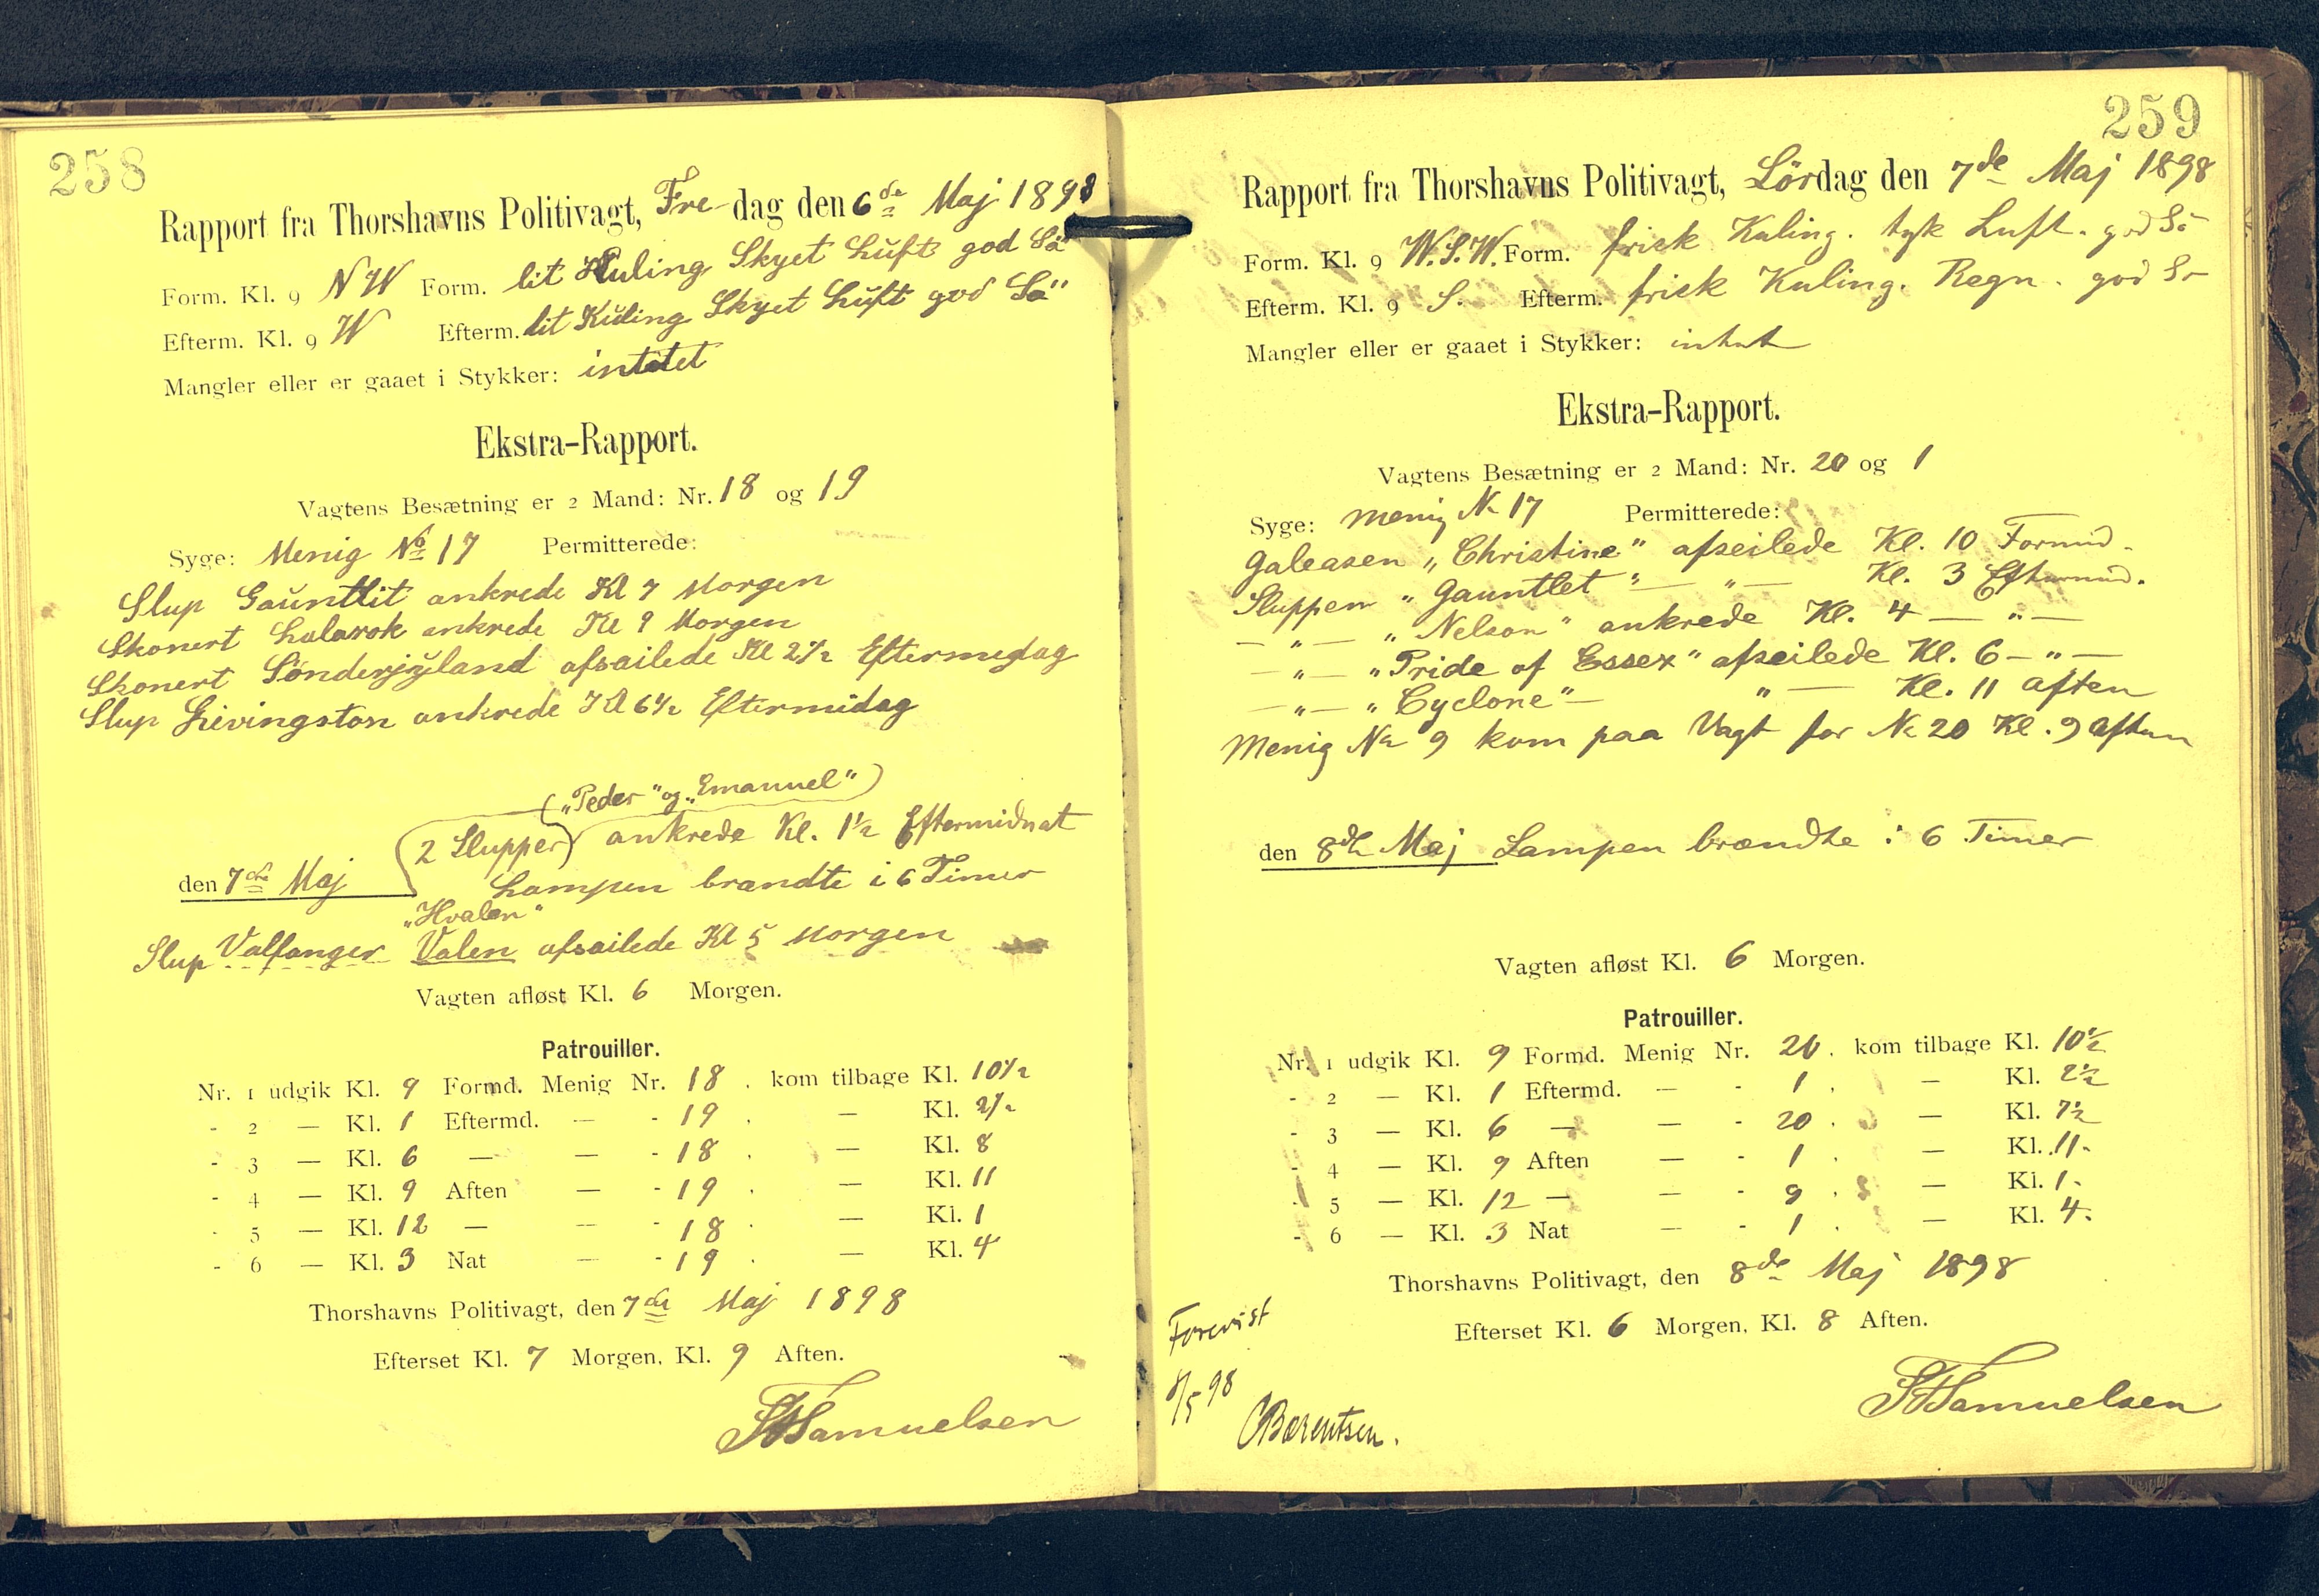 258
Rapport fra Thorshavns Politivagt, Fre-dag den 6de Maj 1898
Form. Kl. 9 NW Form. lit Kuling Skyet Luft god Sä
Efterm. Kl. 9 W Efterm. lit Kuling Skyet Luft god Sö
Mangler eller er gaaet i Stykker: intetet
Ekstra-Rapport.
Vagtens Besætning er 2 Mand: Nr. 18 og 19
Syge: Menig No 17 Permitterede:
Slup Gauntlit ankrede Kl 7 Morgen
Skonert ankrede Kl 9 Morgen
Skonert Sönderjyland afsailede Kl 2½ Eftermedag
Slup Livingston ankrede Kl 6½ Eftermidag
("Peder" og "Emanuel")
(2 Slupper) ankrede Kl. 1½ Eftermidnat
den 7de Maj Lampen brandte i 6 Timer
"Hvalen"
Slup Valfanger Valen afsailede Kl 5 Morgen
Vagten afløst Kl. 6 Morgen.
Patrouiller.
Nr. 1 udgik Kl. 9 Formd. Menig Nr. 18 . kom tilbage Kl. 10½
- 2 — Kl. 1 Eftermd. — - 19 . — Kl. 2½
- 3 — Kl. 6 — — - 18 . — Kl. 8
- 4 — Kl. 9 Aften — - 19 . — Kl. 11
- 5 — Kl. 12 — — - 18 . — Kl. 1
- 6 — Kl. 3 Nat — - 19 . — Kl. 4
Thorshavns Politivagt, den 7de Maj 1898
Efterset Kl. 7 Morgen, Kl. 9 Aften.
Samuelsen
259
Rapport fra Thorshavns Politivagt, Lördag den 7de Maj 1898
Form. Kl. 9 W.S.W. Form. frisk Kuling. tyk Luft. god Sö
Efterm. Kl. 9 S. Efterm. frisk Kuling. Regn. god Sö
Mangler eller er gaaet i Stykker: intet
Ekstra-Rapport.
Vagtens Besætning er 2 Mand: Nr. 20 og 1
Syge: Menig No 17 Permitterede:
Galeasen "Christine" afseilede Kl. 10 Formid.
Sluppen "Gauntlet" — " — Kl. 3 Eftermid.
— " — "Nelson" ankrede Kl. 4 — " —
— " — "Pride of Essex" afseilede Kl. 6 — " —
— " — "Cyclone" — " — Kl. 11 Aften
Menig No 9 kom paa Vagt for No 20 Kl. 9 Aften
den 8de Maj Lampen brændte i 6 Timer
Vagten afløst Kl. 6 Morgen.
Patrouiller.
Nr. 1 udgik Kl. 9 Formd. Menig Nr. 20 . kom tilbage Kl. 10½
- 2 — Kl. 1 Eftermd. — - 1 . — Kl. 2½
- 3 — Kl. 6 — — - 20 . — Kl. 7½
- 4 — Kl. 9 Aften — - 1 . — Kl. 11.
- 5 — Kl. 12 — — - 9 . — Kl. 1.
- 6 — Kl. 3 Nat — - 1 . — Kl. 4.
Thorshavns Politivagt, den 8de Maj 1898
Efterset Kl. 6 Morgen, Kl. 8 Aften.
Samuelsen
Forevist
8/5 98
CBærentsen.